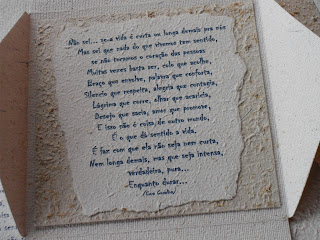 Não sei... se a vida é curta ou longa demais pra nós
Mas sei que nada do que vivemos tem sentido,
se não tocamos o coração das pessoas
Muitas vezes basta ser, colo que acolhe,
Braço que envolve, palavra que conforta,
Silencio que respeita, alegria que contagia,
Lágrima que corre, olhar que acaricia,
Desejo que sacia, amor que promove,
E isso não é coisa de outro mundo,
É o que dá sentido a vida.
É faz com que ela não seja nem curta,
Nem longa demais, mas que seja intensa,
verdadeira, pura...
Enquanto durar...
(Cora Coralina)